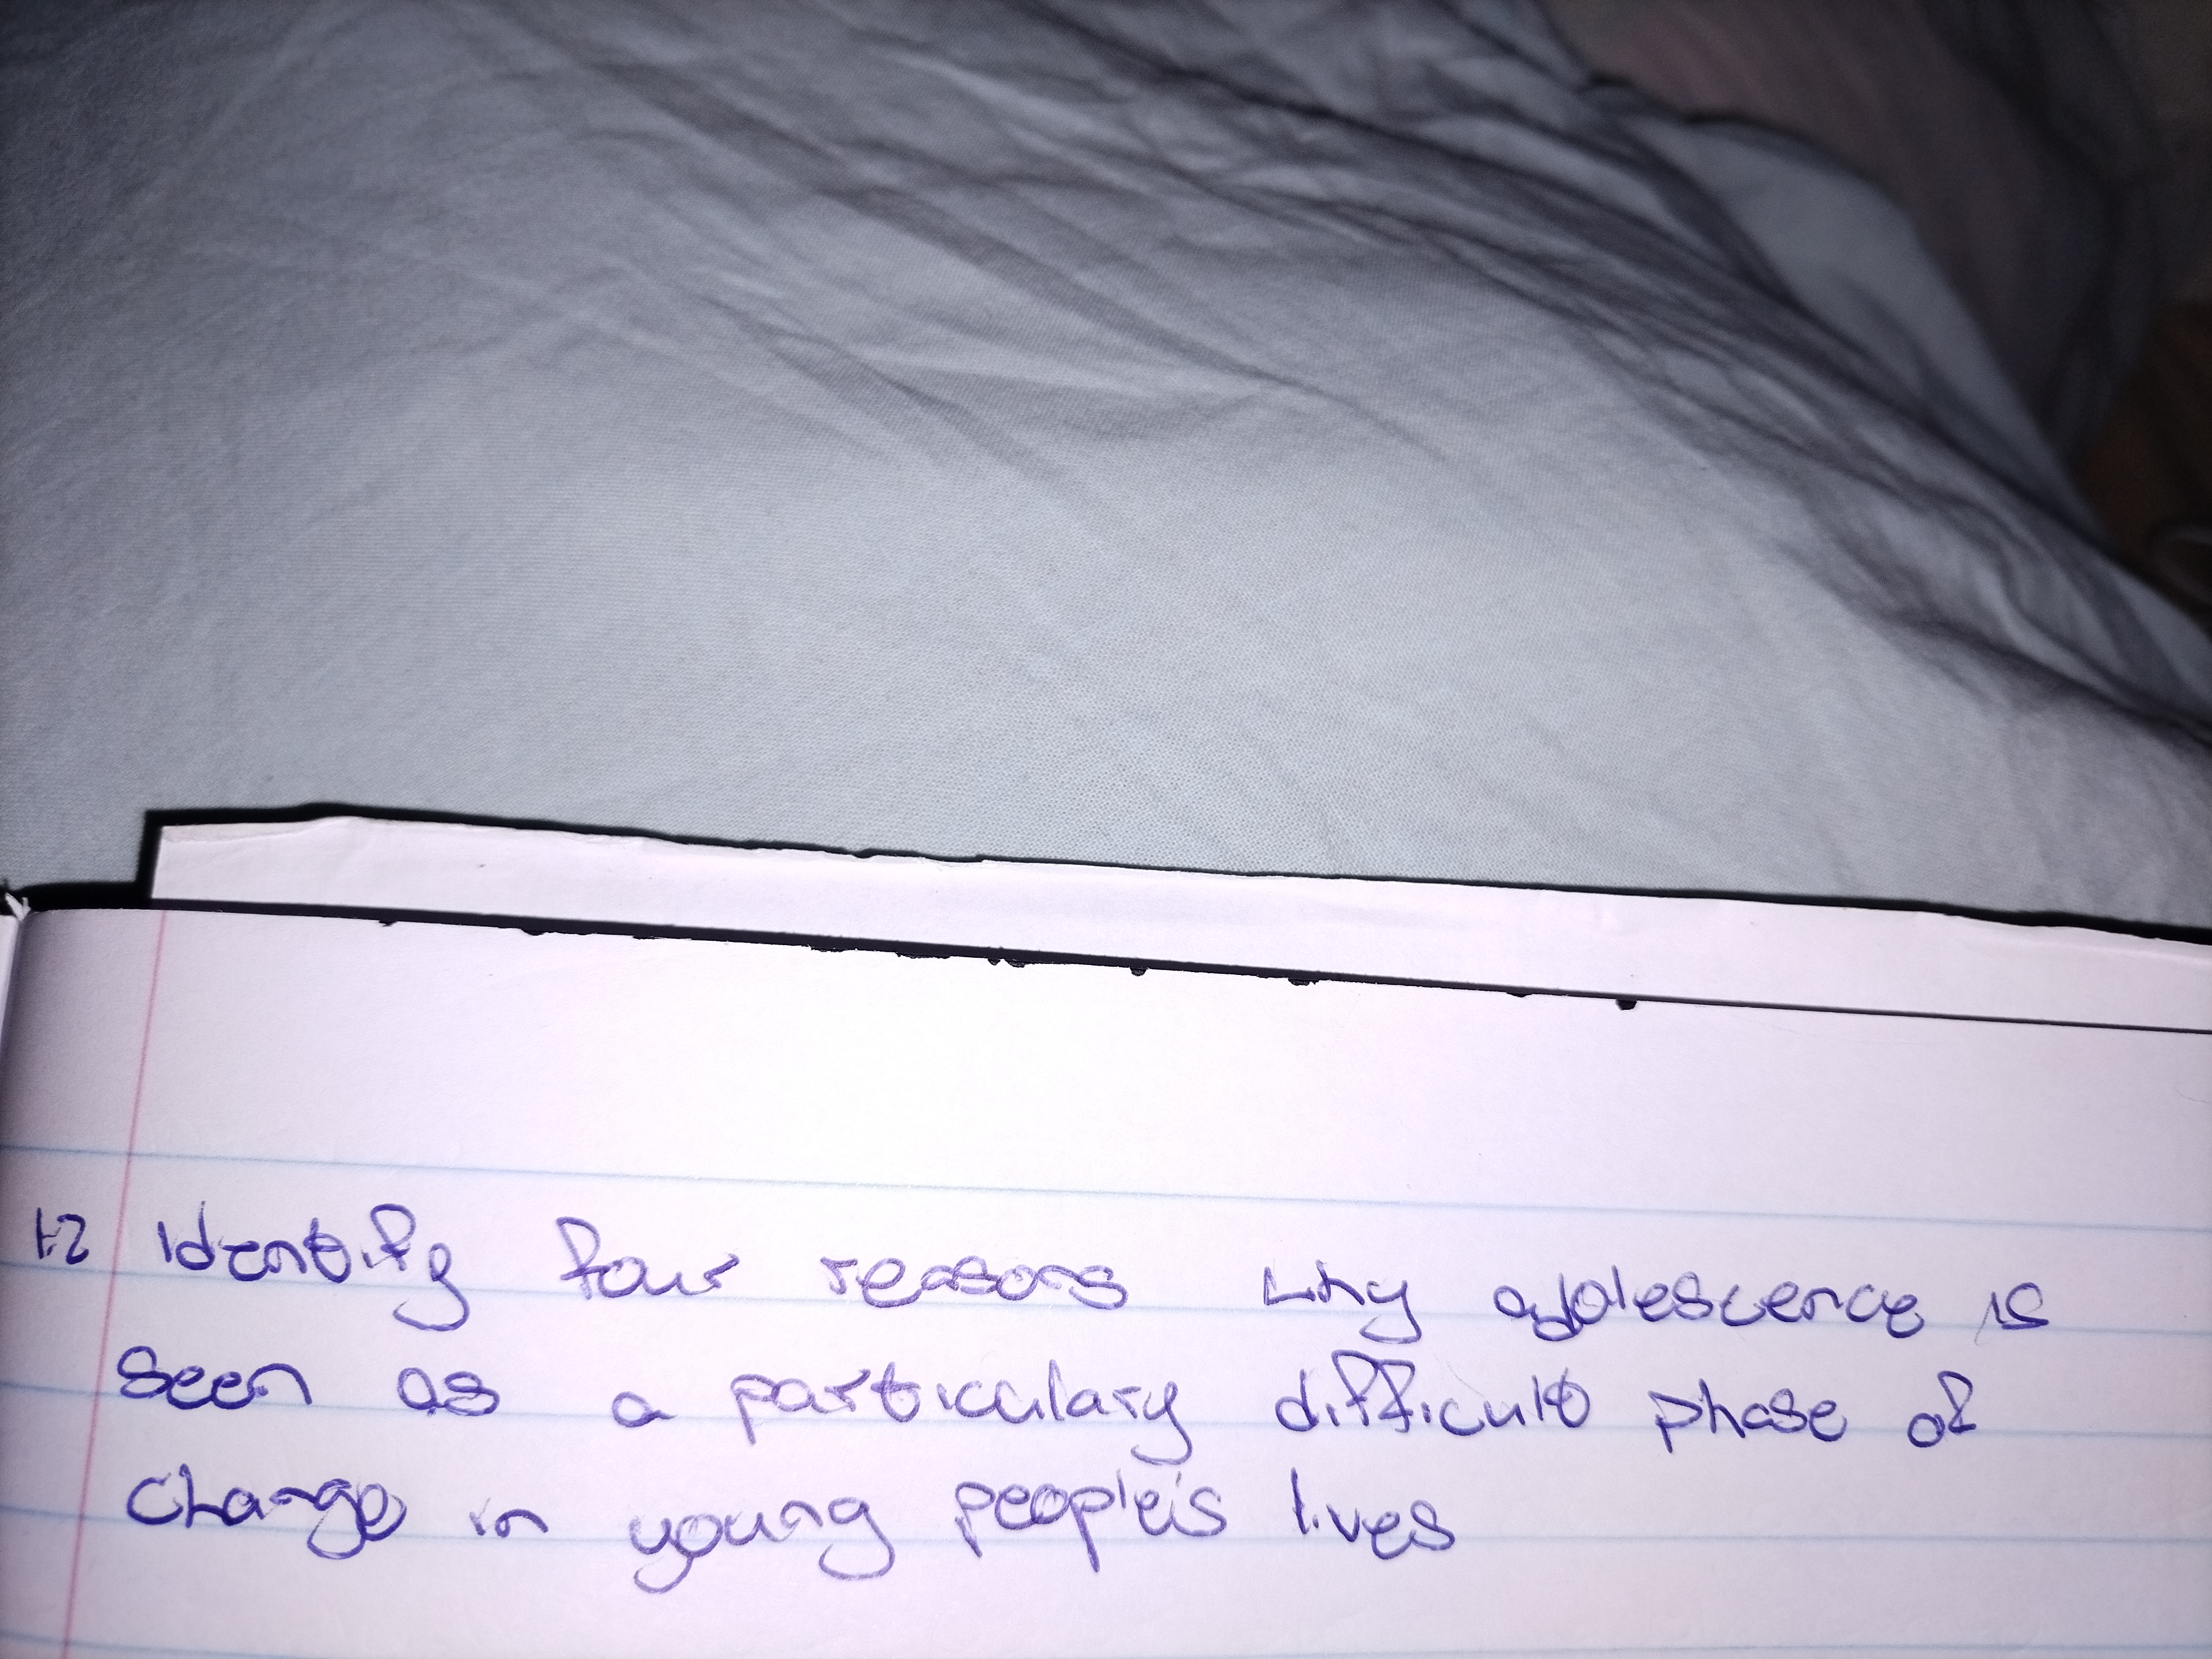 1.2 Identify four reasons why adolescence is
seen as a particulary difficult phase of
change in young people's lives